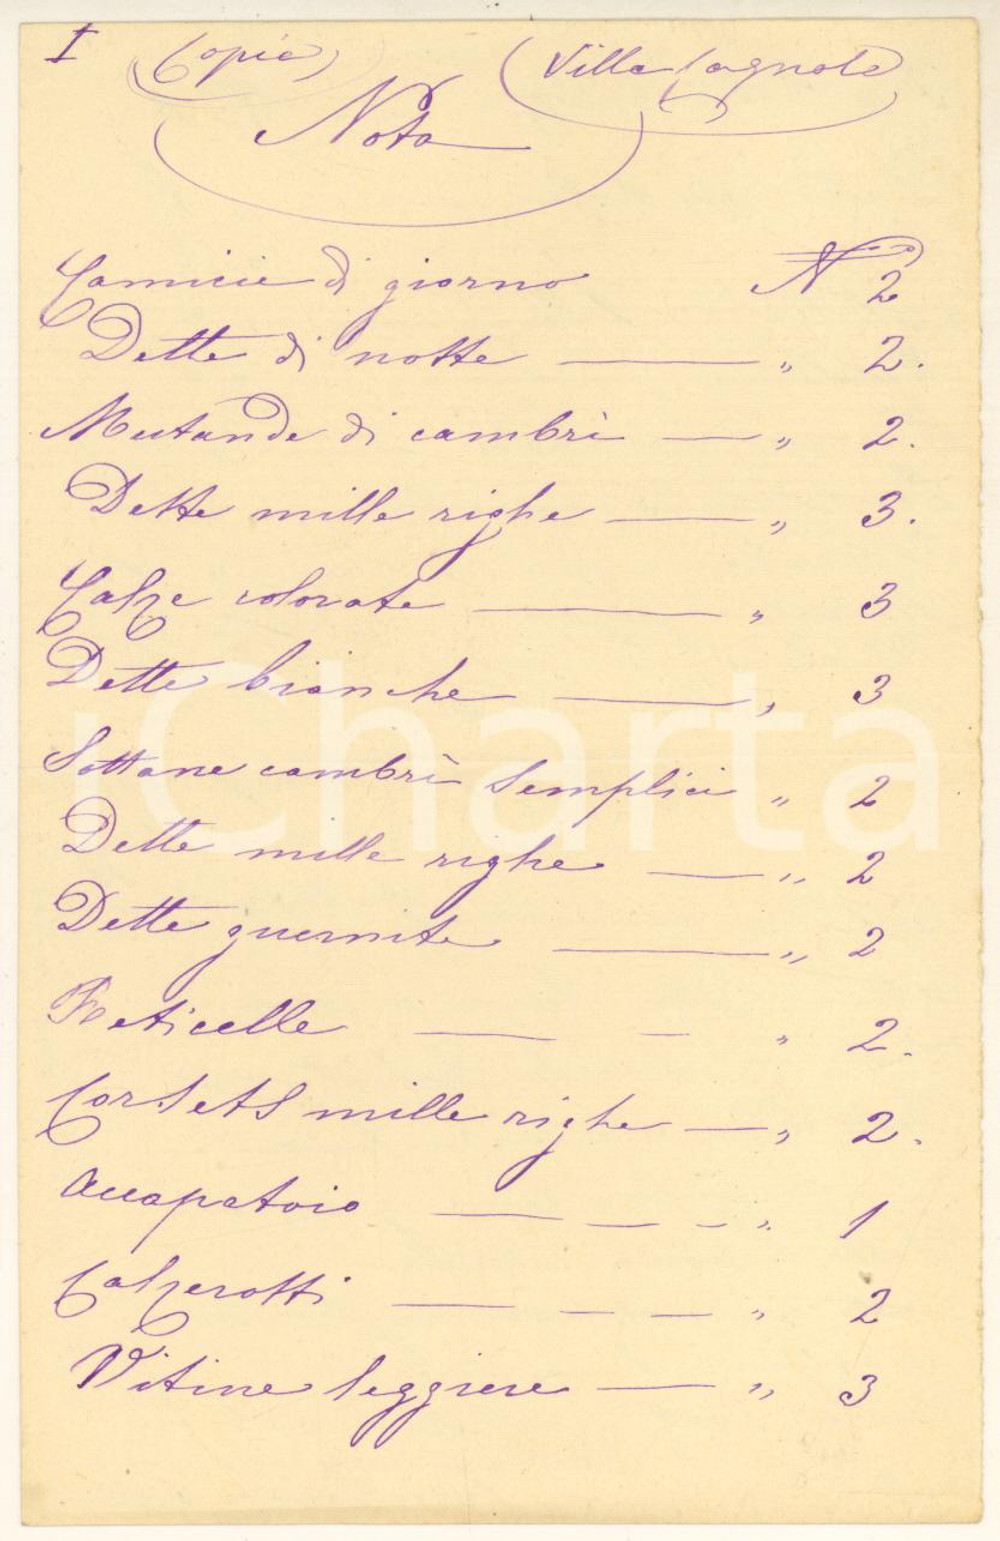 I (Copia) (Villa Cagnola)
Nota
Camicie di giorno N° 2
Dette di notte — " 2.
Mutande di cambrì — " 2.
Dette mille righe — " 3.
Calze colorate — " 3
Dette bianche — " 3
Sottane cambrì semplici " 2
Dette mille righe — " 2
Dette guernite — " 2
Reticelle — — " 2.
Corsets mille righe — " 2.
Accapatoio — — — " 1
Calzerotti — — — " 2
Vitine leggiere — " 3
iCharta